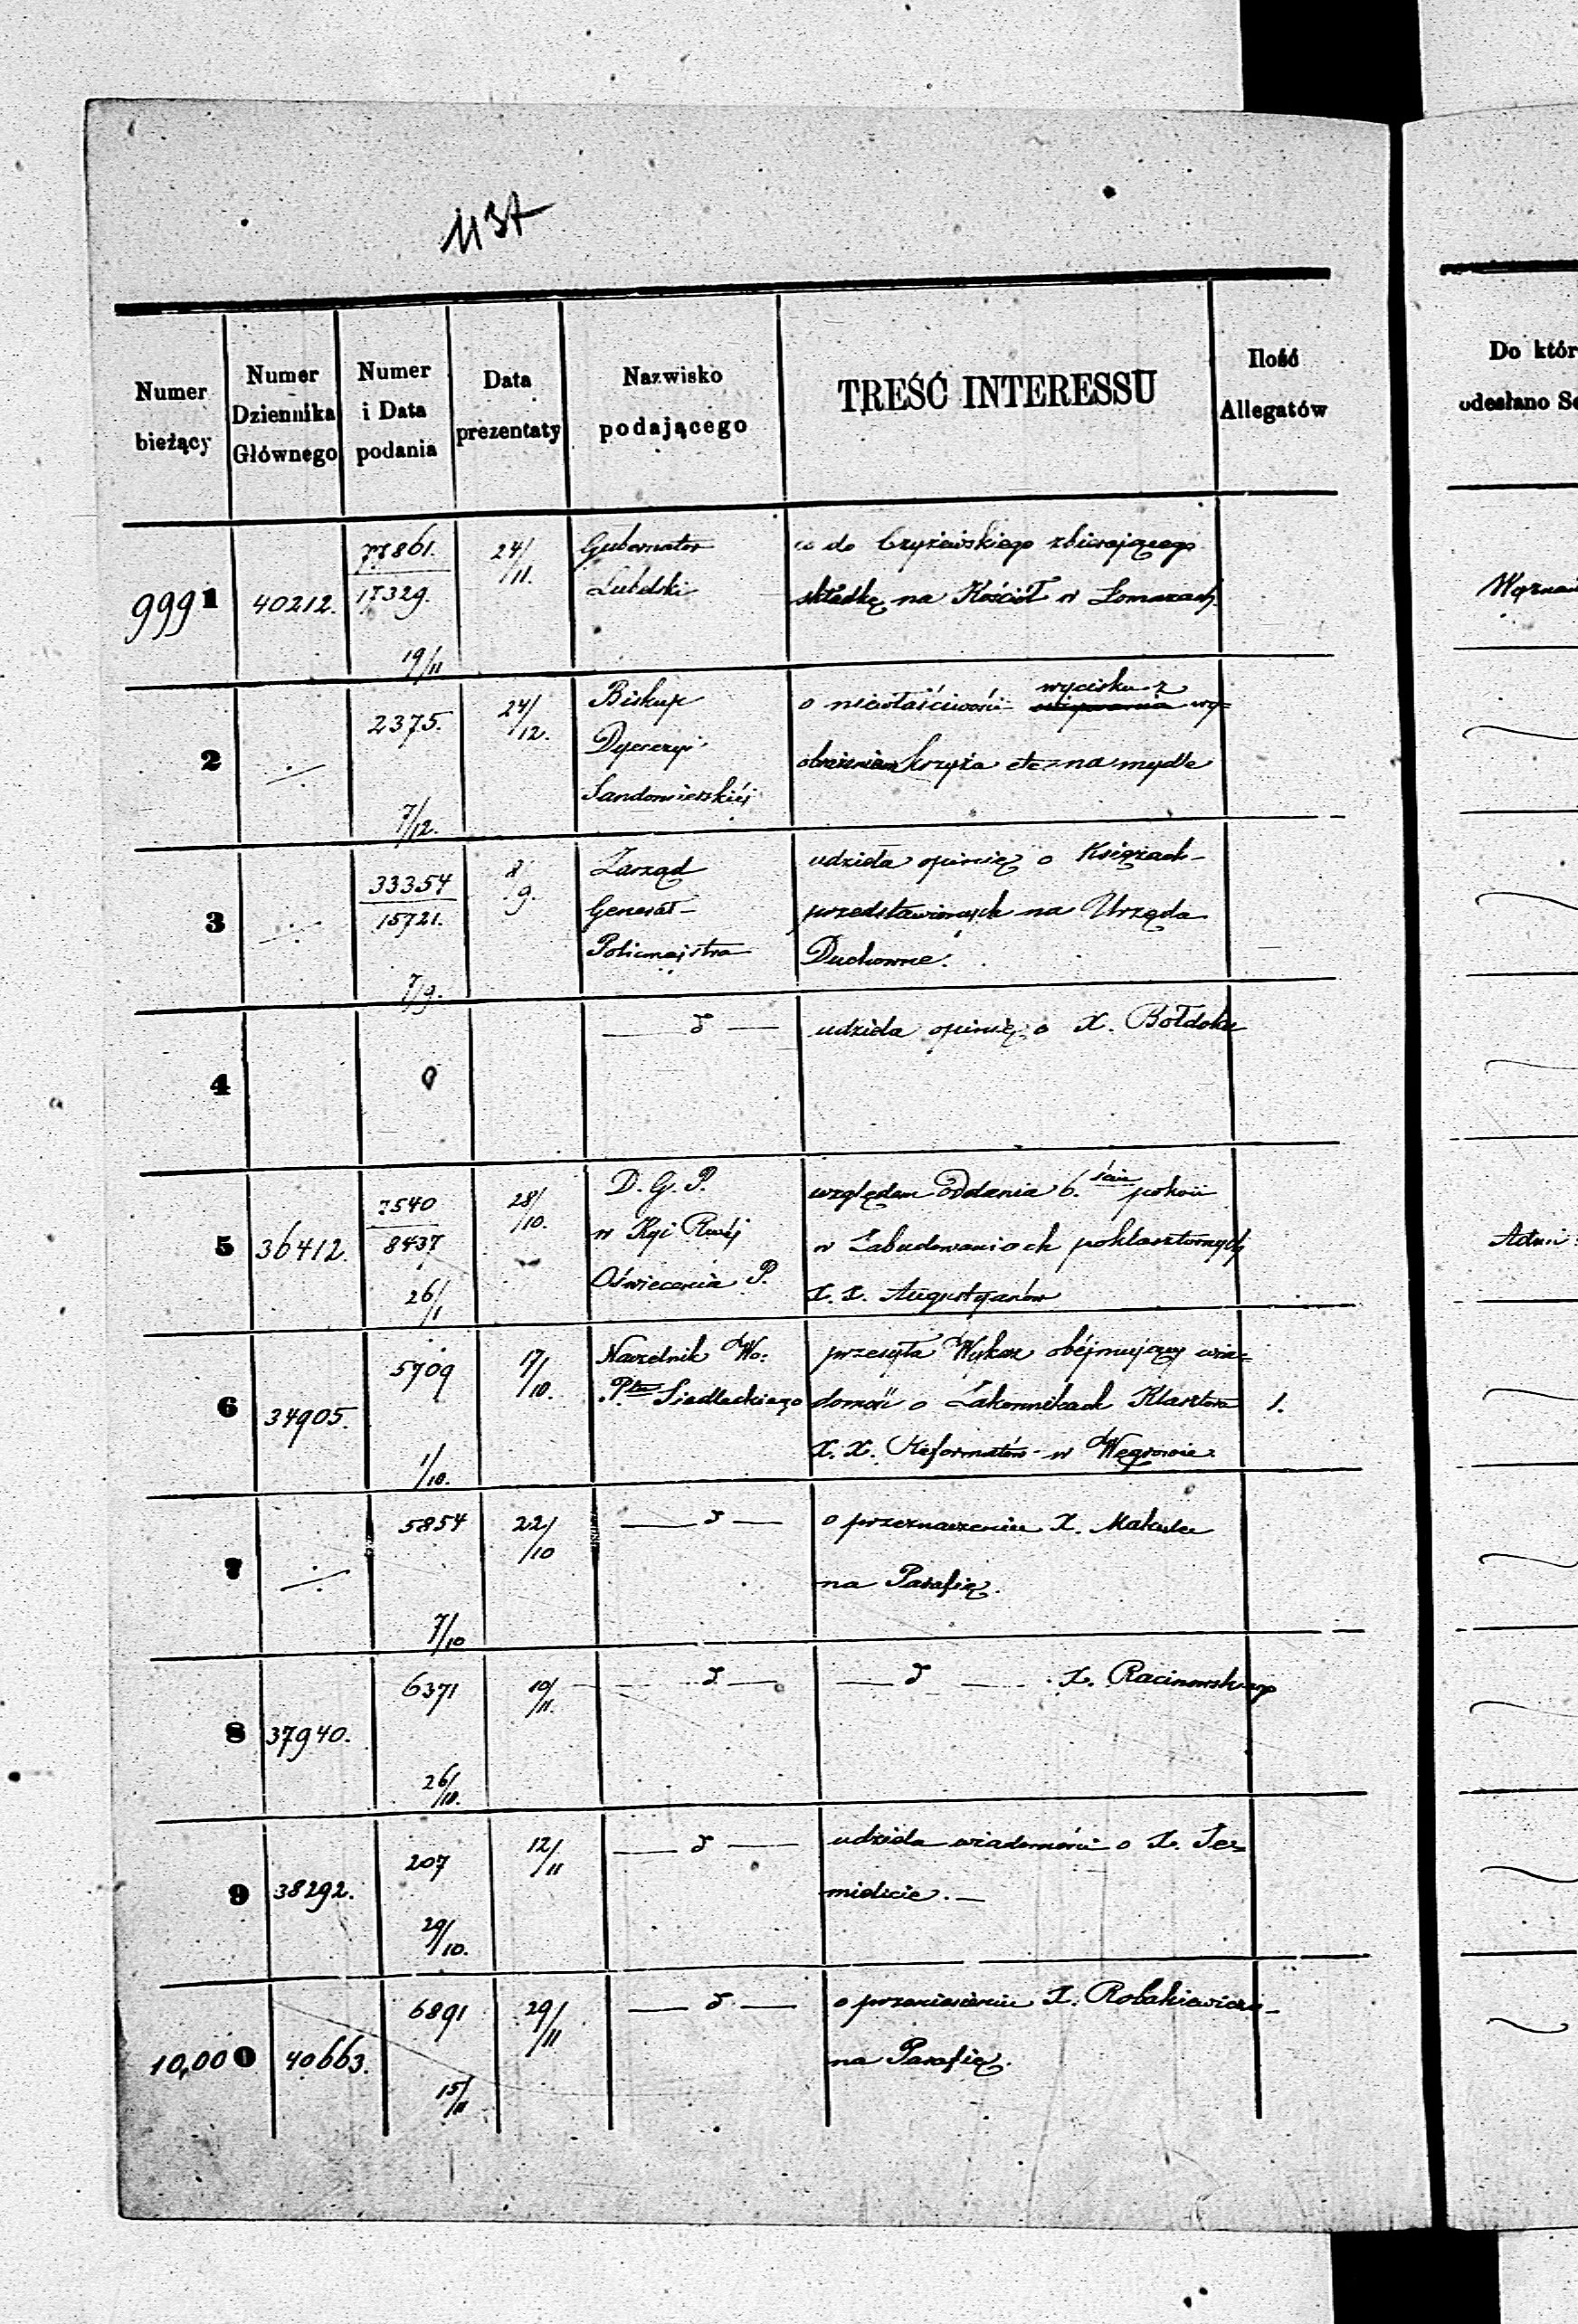 1137
Numer bieżący
Numer Dziennika Głównego
Numer i Data podania
Data prezentaty
Nazwisko podającego
TREŚĆ INTERESSU
Ilość Allegatów
Do któr
odesłano Se
9991
40212.
15329.
19/11
24/11.
Gubernator
Lubelski
co do Czyżewskiego zbierającego
składkę na Kościół w Łomazach
2
2375.
7/12.
24/12.
Biskup
Dyecezyi
Sandomierskiéj
o niewłaściwości wycisku z wy=
obrażeniem krzyża etc na mydle
3
33354
15721.
7/9.
8/9.
Zarząd
Generał-
Policmajstra
udziela opinię o Księżach
przedstawionych na Urzęda
Duchowne.
4
— d —
udziela opinię o X. Bołdoku
5
36412.
7540
8437
26/1
28/10.
D. G. P.
w Kgi Rwéj
Oświecenia P.
względem oddania 6.ściu pokoii
w Zabudowaniach poklasztornych
X. X. Augustyanów
6
34905.
5709
1/10.
17/10.
Naczelnik Wo:
Ptu Siedleckiego
przesyła Wykaz obéjmujący wia=
domości o Zakonnikach Klasztoru
X. X. Reformatów w Węgrowie
1.
7
5854
7/10
22/10
— d —
o przeznaczeniu X. Makule
na Parafię.
8
37940.
6371
26/10.
10/11.
— d —
— d — X. Racinowskiego
9
38292.
207
29/10.
12/11
— d —
udziela wiadomości o X. Jer=
miolicie. —
10,000
40663.
6891
15/11
29/11
— d —
o przeniesieniu X. Robakiewicza
na Parafię.